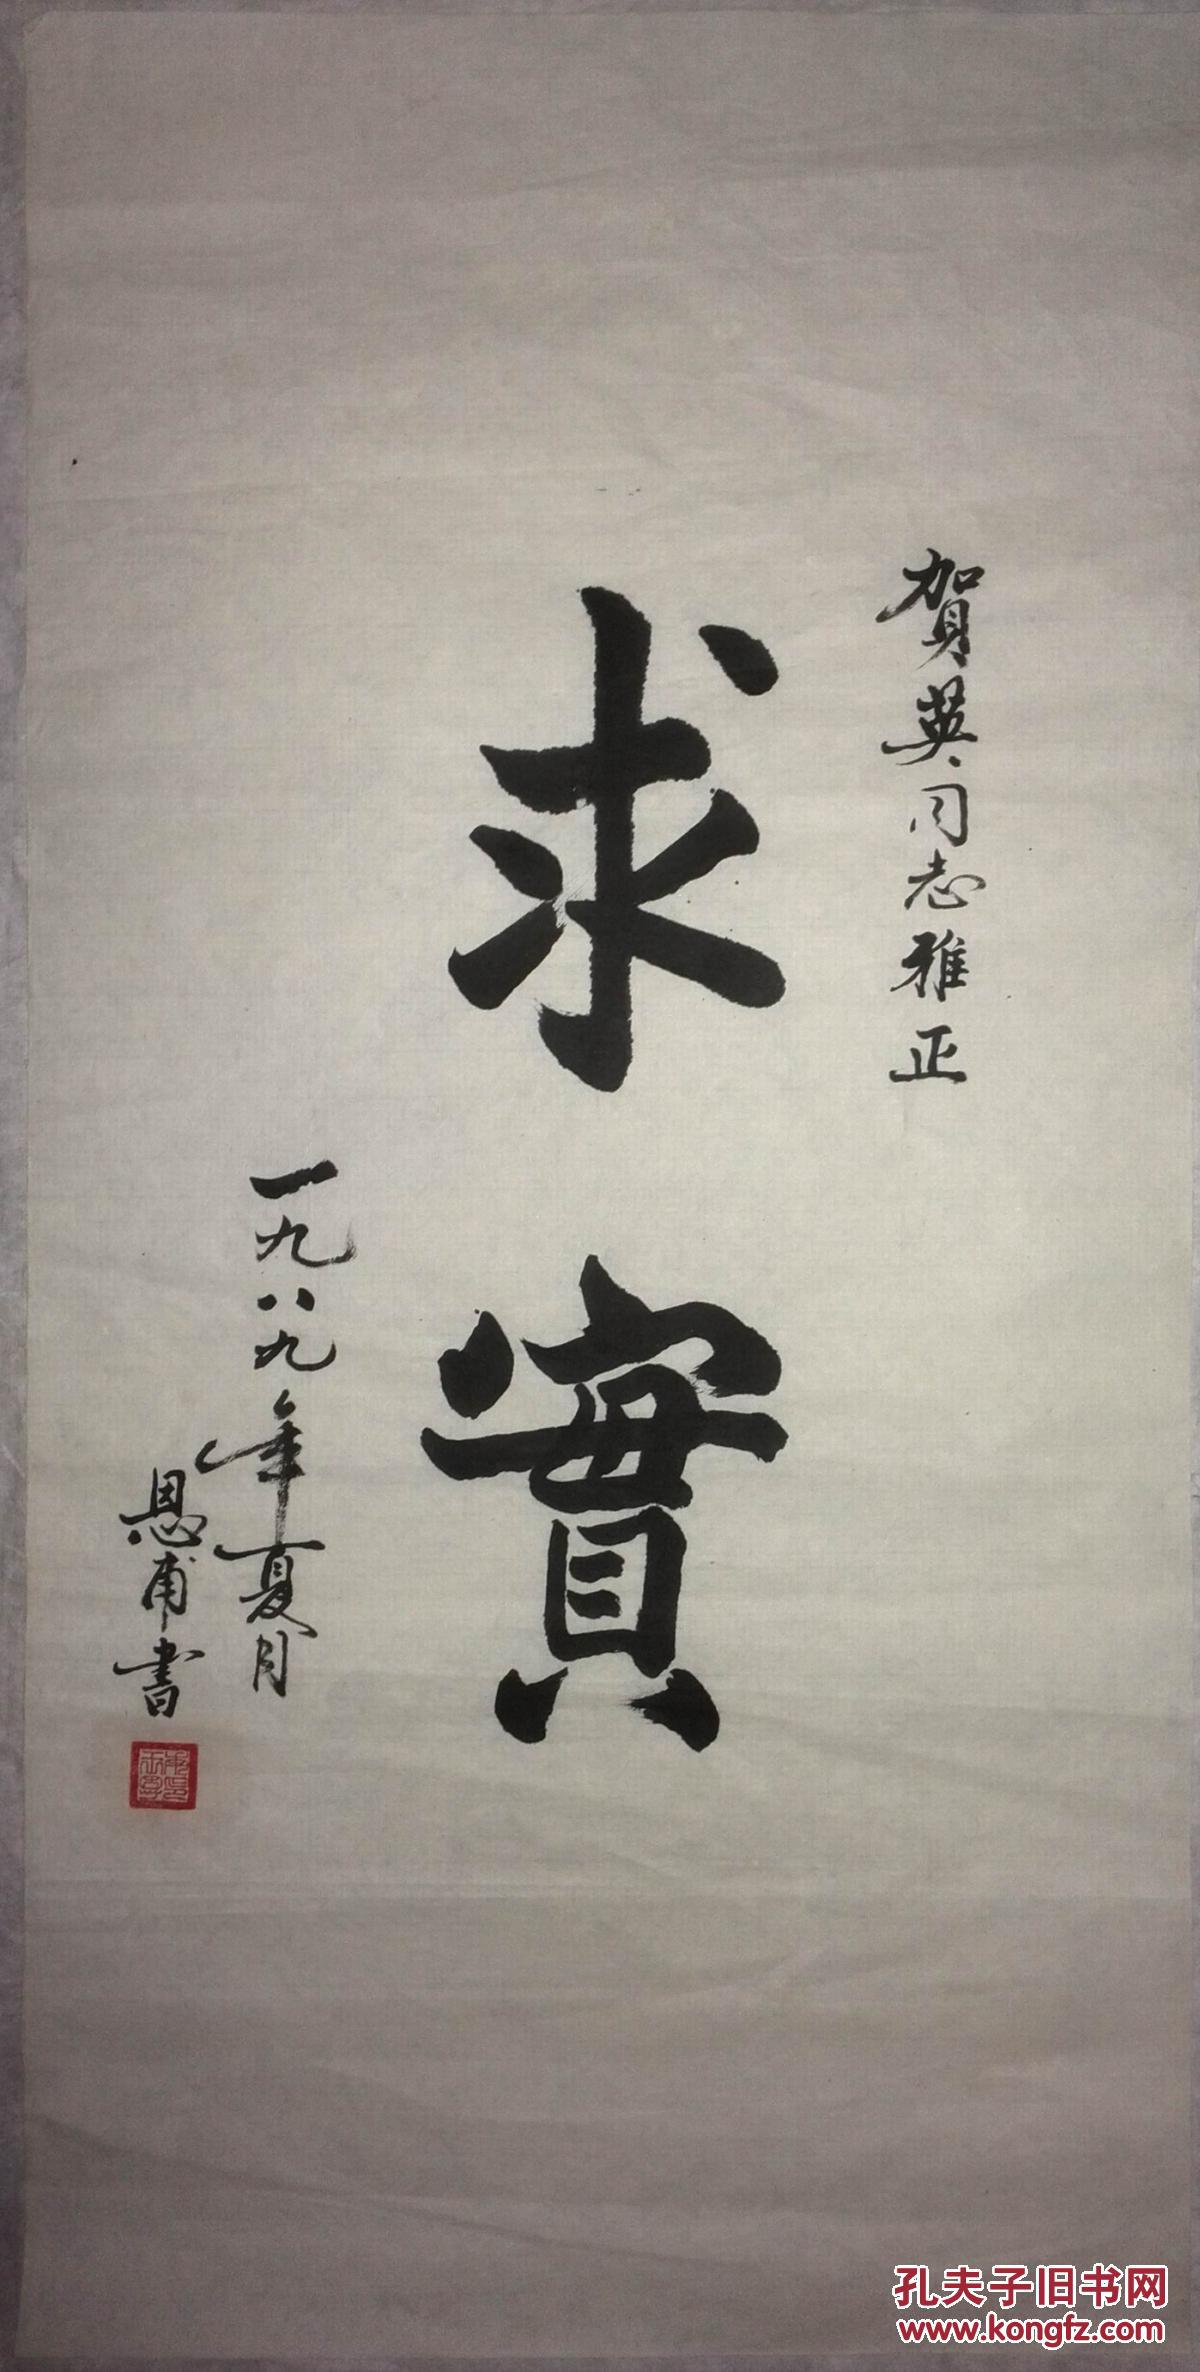 贺英同志雅正
求實
一九八九年夏月
恩甫書
孔夫子旧书网
www.kongfz.com